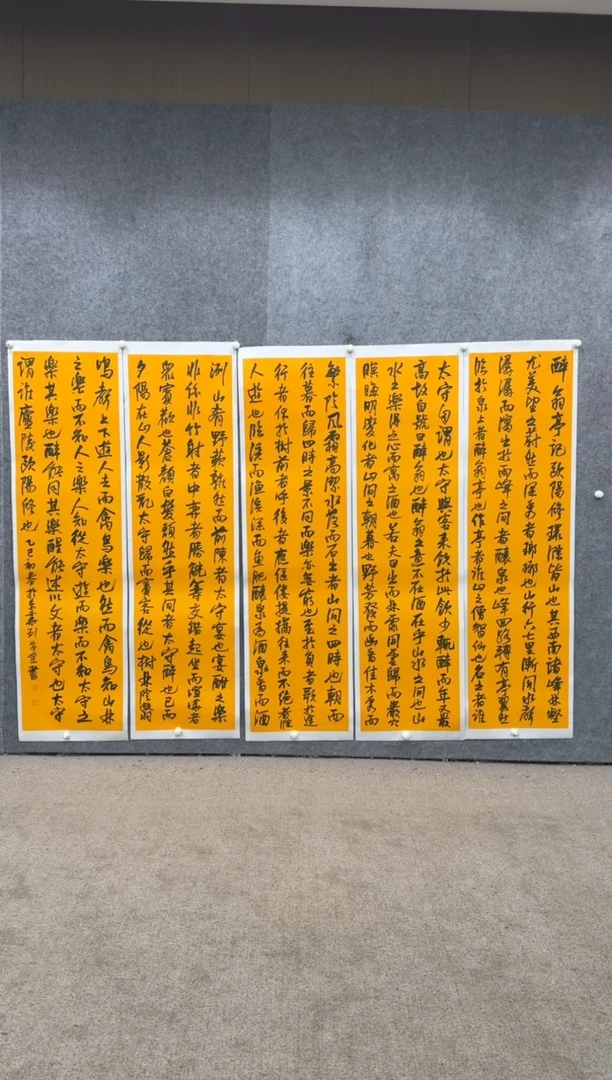 醉翁亭記歐陽修環滁皆山也其西南諸峰林壑
尤美望之蔚然而深秀者瑯琊也山行六七里漸聞水聲
潺潺而瀉出於兩峰之間者釀泉也峰回路轉有亭翼然
臨於泉上者醉翁亭也作亭者誰山之僧智仙也名之者誰
太守自謂也太守與客來飲於此飲少輒醉而年又最
高故自號曰醉翁也醉翁之意不在酒在乎山水之間也山
水之樂得之心而寓之酒也若夫日出而林霏開雲歸而巖穴
暝晦明變化者山間之朝暮也野芳發而幽香佳木秀而
繁陰風霜高潔水落而石出者山間之四時也朝而
往暮而歸四時之景不同而樂亦無窮也至於負者歌於途
行者休於樹前者呼後者應傴僂提攜往來而不絕者滁
人遊也臨溪而漁溪深而魚肥釀泉為酒泉香而酒
洌山肴野蔌雜然而前陳者太守宴也宴酣之樂
非絲非竹射者中弈者勝觥籌交錯起坐而諠譁者
眾賓歡也蒼顏白髮頹然乎其間者太守醉也已而
夕陽在山人影散亂太守歸而賓客從也樹林陰翳
鳴聲上下遊人去而禽鳥樂也然而禽鳥知山林
之樂而不知人之樂人知從太守遊而樂而不知太守之
樂其樂也醉能同其樂醒能述以文者太守也太守
謂誰廬陵歐陽修也 乙巳初春於